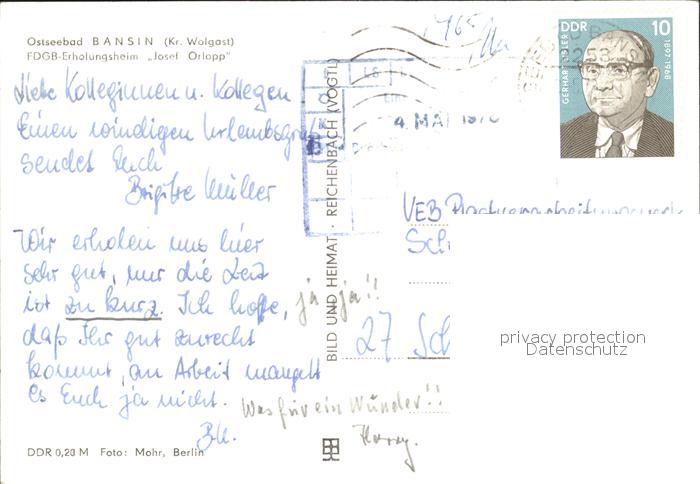 Ostseebad BANSIN (Kr. Wolgast)
FDGB-Erholungsheim „Josef Orlopp"
Liebe Kolleginnen u. Kollegen
Einen windigen Urlaubsgruß
sendet Euch
Brigitte Müller
Wir erholen uns hier
sehr gut, nur die Zeit
ist zu kurz. Ich hoffe,
ja ja!!
daß Ihr gut zurecht
kommt, an Arbeit mangelt
es Euch ja nicht.
Was für ein Wunder!!
Harry.
DDR 0,20 M Foto: Mohr, Berlin
BILD UND HEIMAT · REICHENBACH (VOGTL)
4. MAI
DDR 10
GERHART EISLER 1897-1968
VEB Plastverarbeitungswerk
Sch
27 Sch
privacy protection
Datenschutz